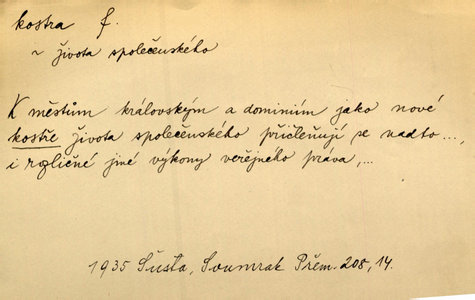 kostra f.
~ života společenského
K městům královským a dominiím jako nové
kostře života společenského přičleňují se nadto...,
i rozličné jiné výkony veřejného práva,...
1935 Šusta, Soumrak Přem. 208, 14.